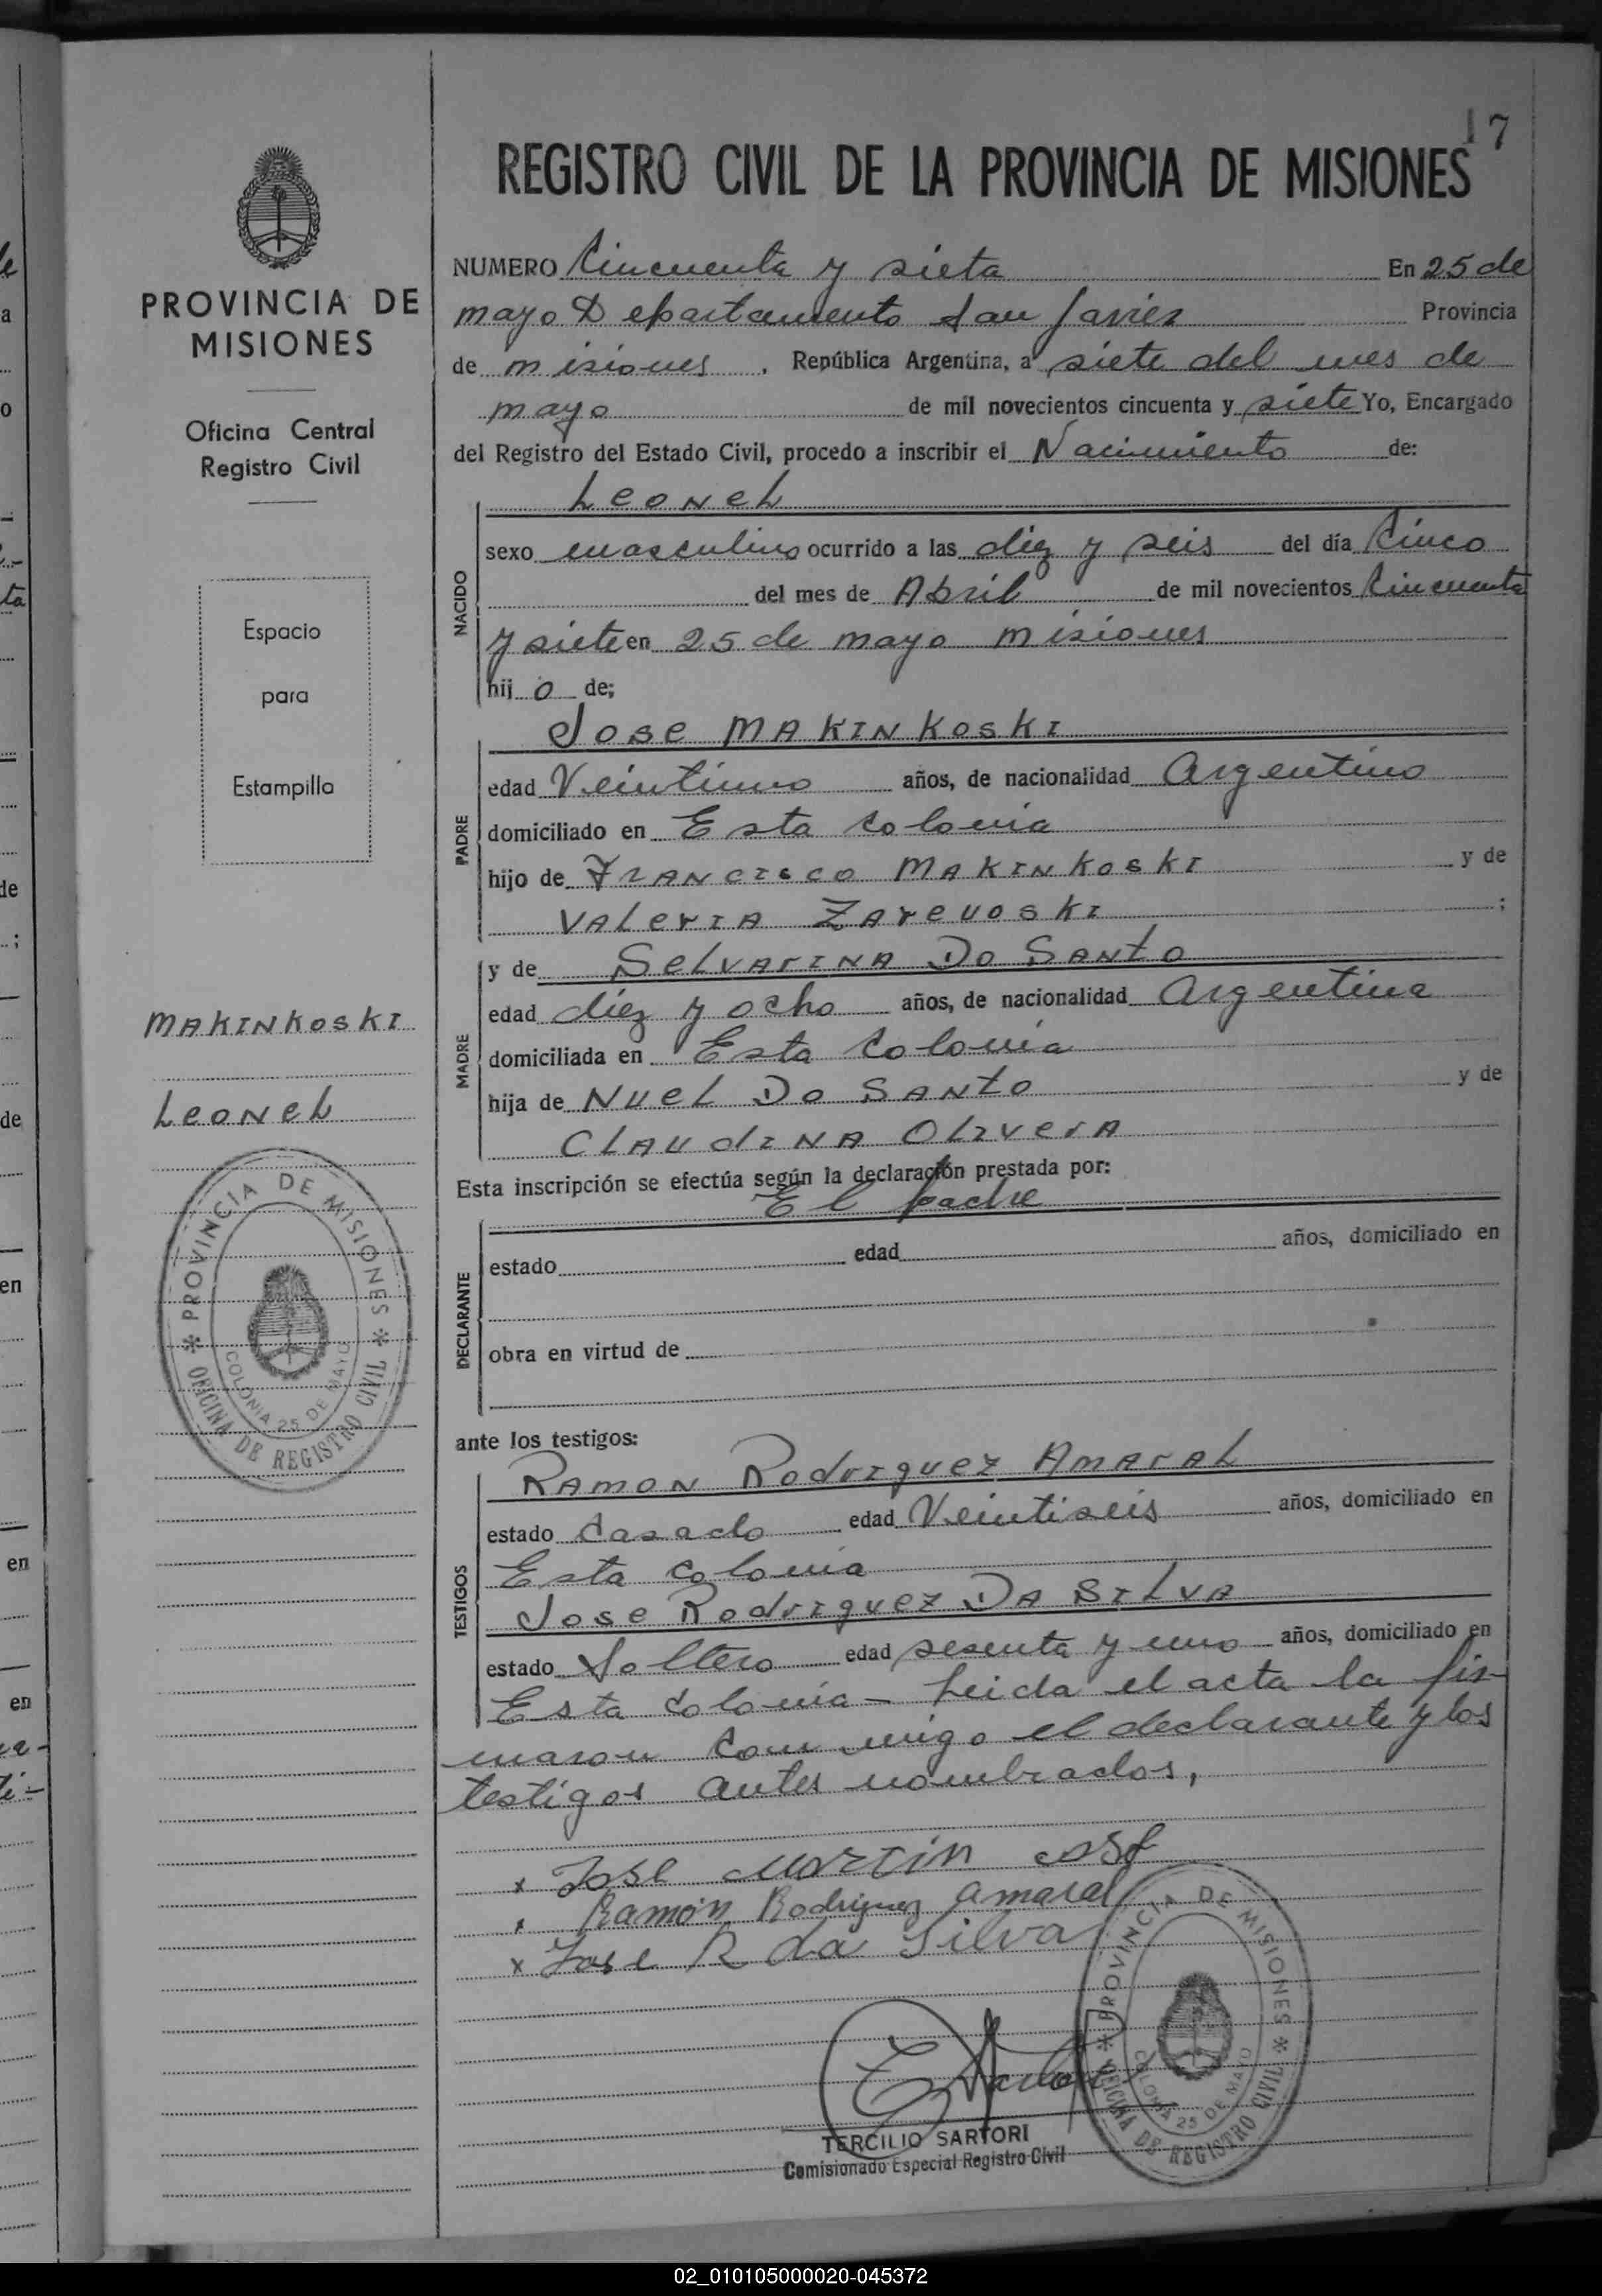 17
REGISTRO CIVIL DE LA PROVINCIA DE MISIONES
PROVINCIA DE
MISIONES
Oficina Central
Registro Civil
Espacio
para
Estampilla
MAKINKOSKI
LEONEL
PROVINCIA DE MISIONES
OFICINA DE REGISTRO CIVIL
COLONIA 25 DE MAYO
NUMERO Cincuenta y siete En 25 de
mayo Departamento San Javier Provincia
de misiones, República Argentina, a siete del mes de
mayo de mil novecientos cincuenta y siete Yo, Encargado
del Registro del Estado Civil, procedo a inscribir el Nacimiento de:
NACIDO
LEONEL
sexo masculino ocurrido a las diez y seis del día Cinco
del mes de Abril de mil novecientos Cincuenta
y siete en 25 de mayo misiones
hij o de;
JOSE MAKINKOSKI
PADRE
edad Veintiuno años, de nacionalidad Argentino
domiciliado en Esta Colonia
hijo de FRANCISCO MAKINKOSKI y de
VALERIA ZAREUOSKI ;
y de SELVARINA DO SANTO
MADRE
edad diez y ocho años, de nacionalidad Argentina
domiciliada en Esta Colonia
hija de NUEL DO SANTO y de
CLAUDINA OLIVERA
Esta inscripción se efectúa según la declaración prestada por:
El padre
DECLARANTE
estado edad años, domiciliado en
obra en virtud de
ante los testigos:
RAMON RODRIGUEZ AMARAL
TESTIGOS
estado Casado edad Veintiseis años, domiciliado en
Esta Colonia
JOSE RODRIGUEZ DA SILVA
estado Soltero edad sesenta y uno años, domiciliado en
Esta Colonia - Leida el acta la fir-
maron com migo el declarante y los
testigos antes nombrados,
x Jose
x Ramón Rodriguez Amaral
x Jose R da Silva
PROVINCIA DE MISIONES
OFICINA DE REGISTRO CIVIL
COLONIA 25 DE MAYO
TERCILIO SARTORI
Comisionado Especial Registro Civil
02_010105000020-045372